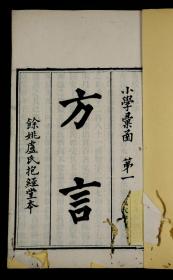 小學彙函 第一
方言
餘姚盧氏抱經堂本